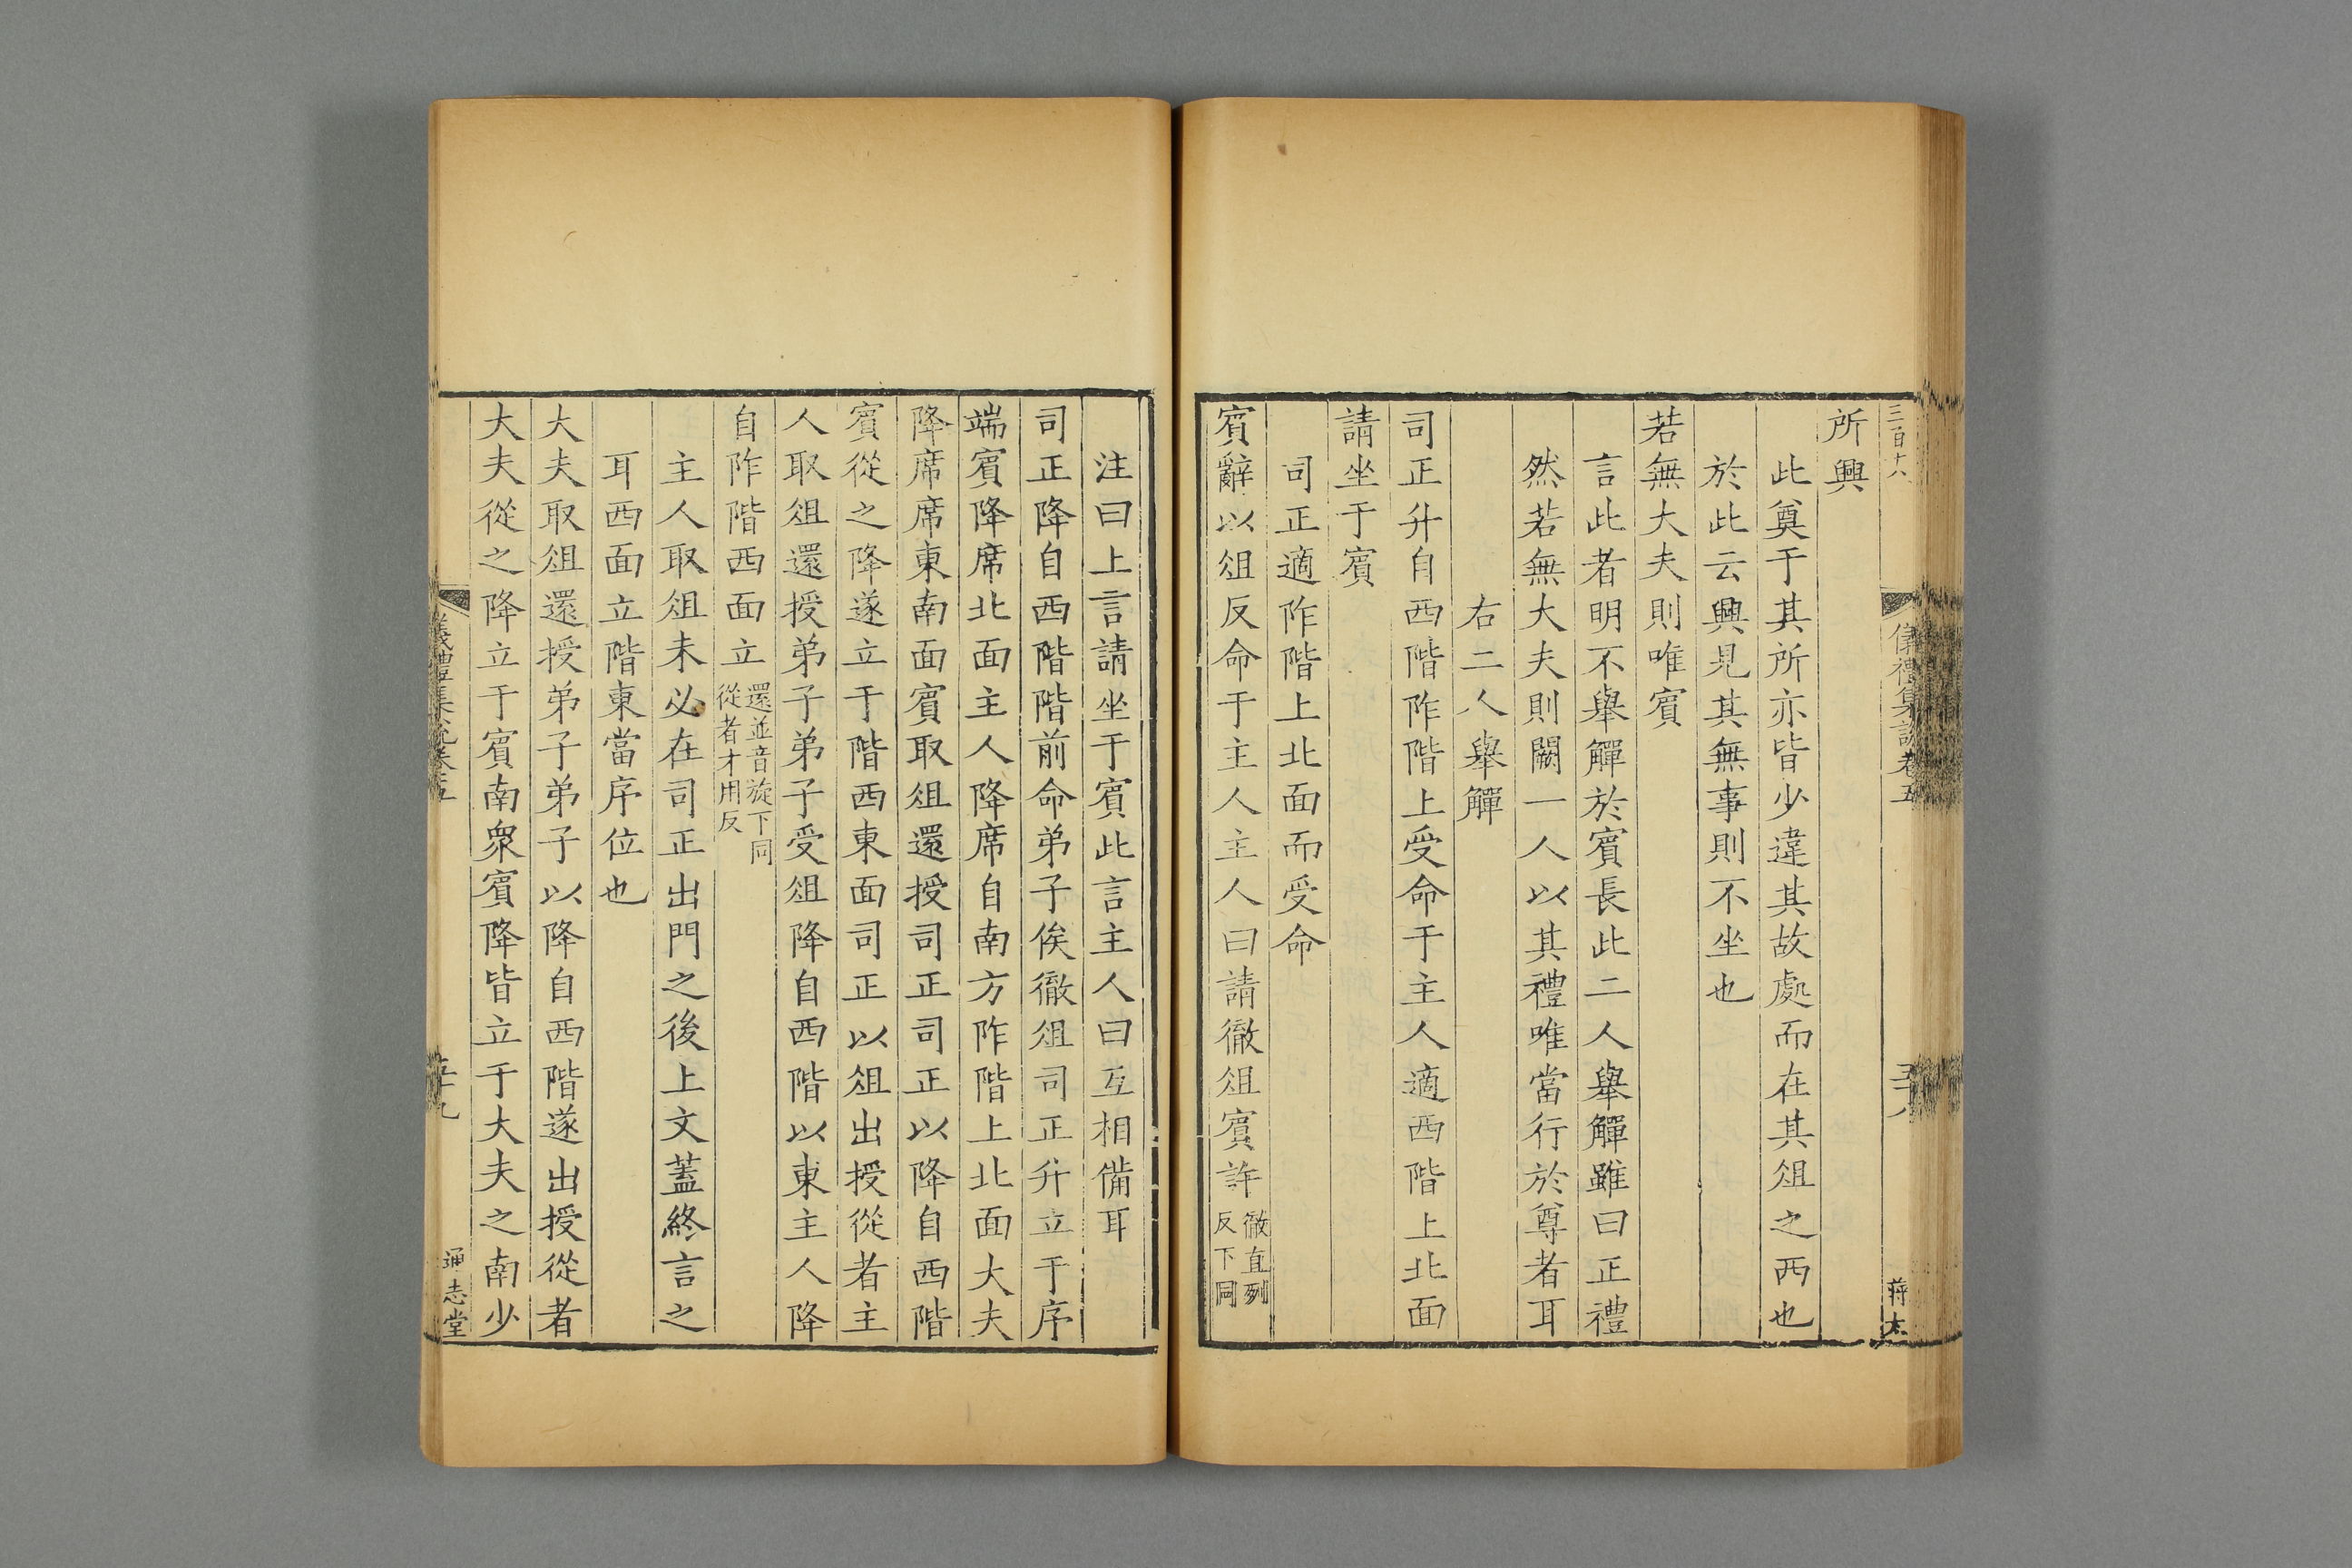 三百十八
儀禮集說卷五
五十八
蔣太
所興
此奠于其所亦皆少違其故處而在其俎之西也
於此云興見其無事則不坐也
若無大夫則唯賓
言此者明不舉觶於賓長此二人舉觶雖曰正禮
然若無大夫則闕一人以其禮唯當行於尊者耳
右二人舉觶
司正升自西階阼階上受命于主人適西階上北面
請坐于賓
司正適阼階上北面而受命
賓辭以俎反命于主人主人曰請徹俎賓許徹直列
反下同
注曰上言請坐于賓此言主人曰互相備耳
司正降自西階階前命弟子俟徹俎司正升立于序
端賓降席北面主人降席自南方阼階上北面大夫
降席席東南面賓取俎還授司正司正以降自西階
賓從之降遂立于階西東面司正以俎出授從者主
人取俎還授弟子弟子受俎降自西階以東主人降
自阼階西面立還並音旋下同
從者才用反
主人取俎未必在司正出門之後上文蓋終言之
耳西面立階東當序位也
大夫取俎還授弟子弟子以降自西階遂出授從者
大夫從之降立于賓南衆賓降皆立于大夫之南少
儀禮集說卷五
五十九
通志堂